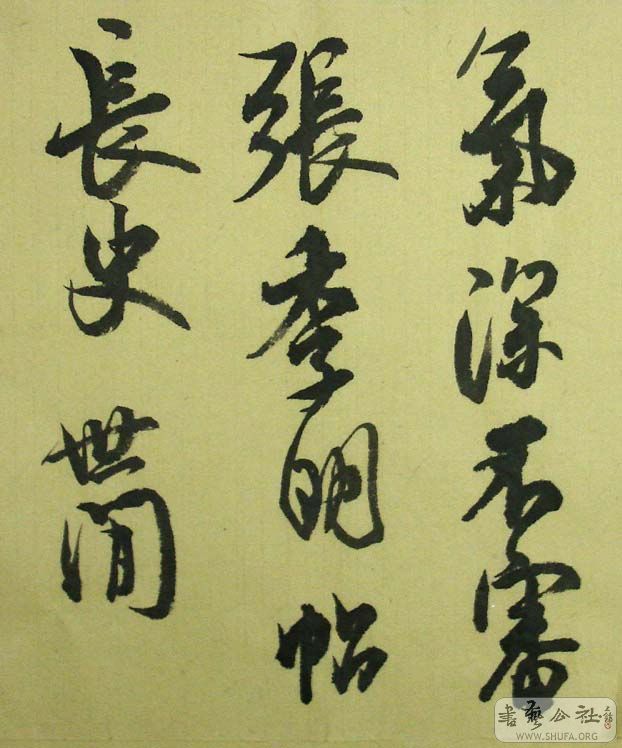 氣深不審
張季明帖
長史世間
書藝公社
WWW.SHUFA.ORG